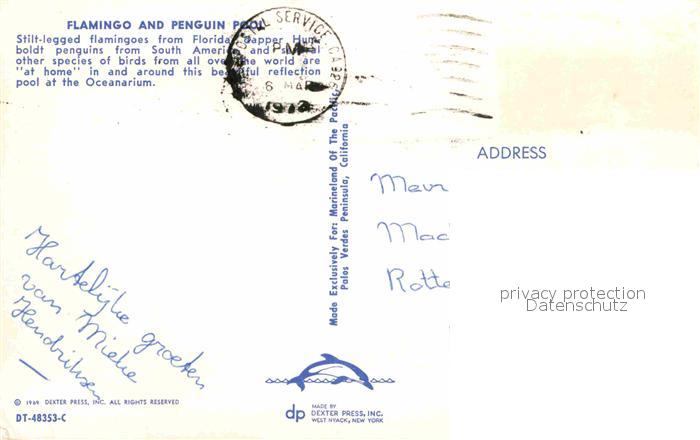 FLAMINGO AND PENGUIN POOL
Stilt-legged flamingoes from Florida, dapper Hum-
boldt penguins from South America and several
other species of birds from all over the world are
"at home" in and around this beautiful reflection
pool at the Oceanarium.
POSTAL SERVICE, CA
PM
6 MAR
1973
Made Exclusively For: Marineland Of The Pacific
Palos Verdes Peninsula, California
ADDRESS
Mevr
Mad
Rotte
privacy protection
Datenschutz
Hartelijke groeten
van Mieke
Hendriksen
© 1969 DEXTER PRESS, INC. ALL RIGHTS RESERVED
DT-48353-C
dp
MADE BY
DEXTER PRESS, INC.
WEST NYACK, NEW YORK